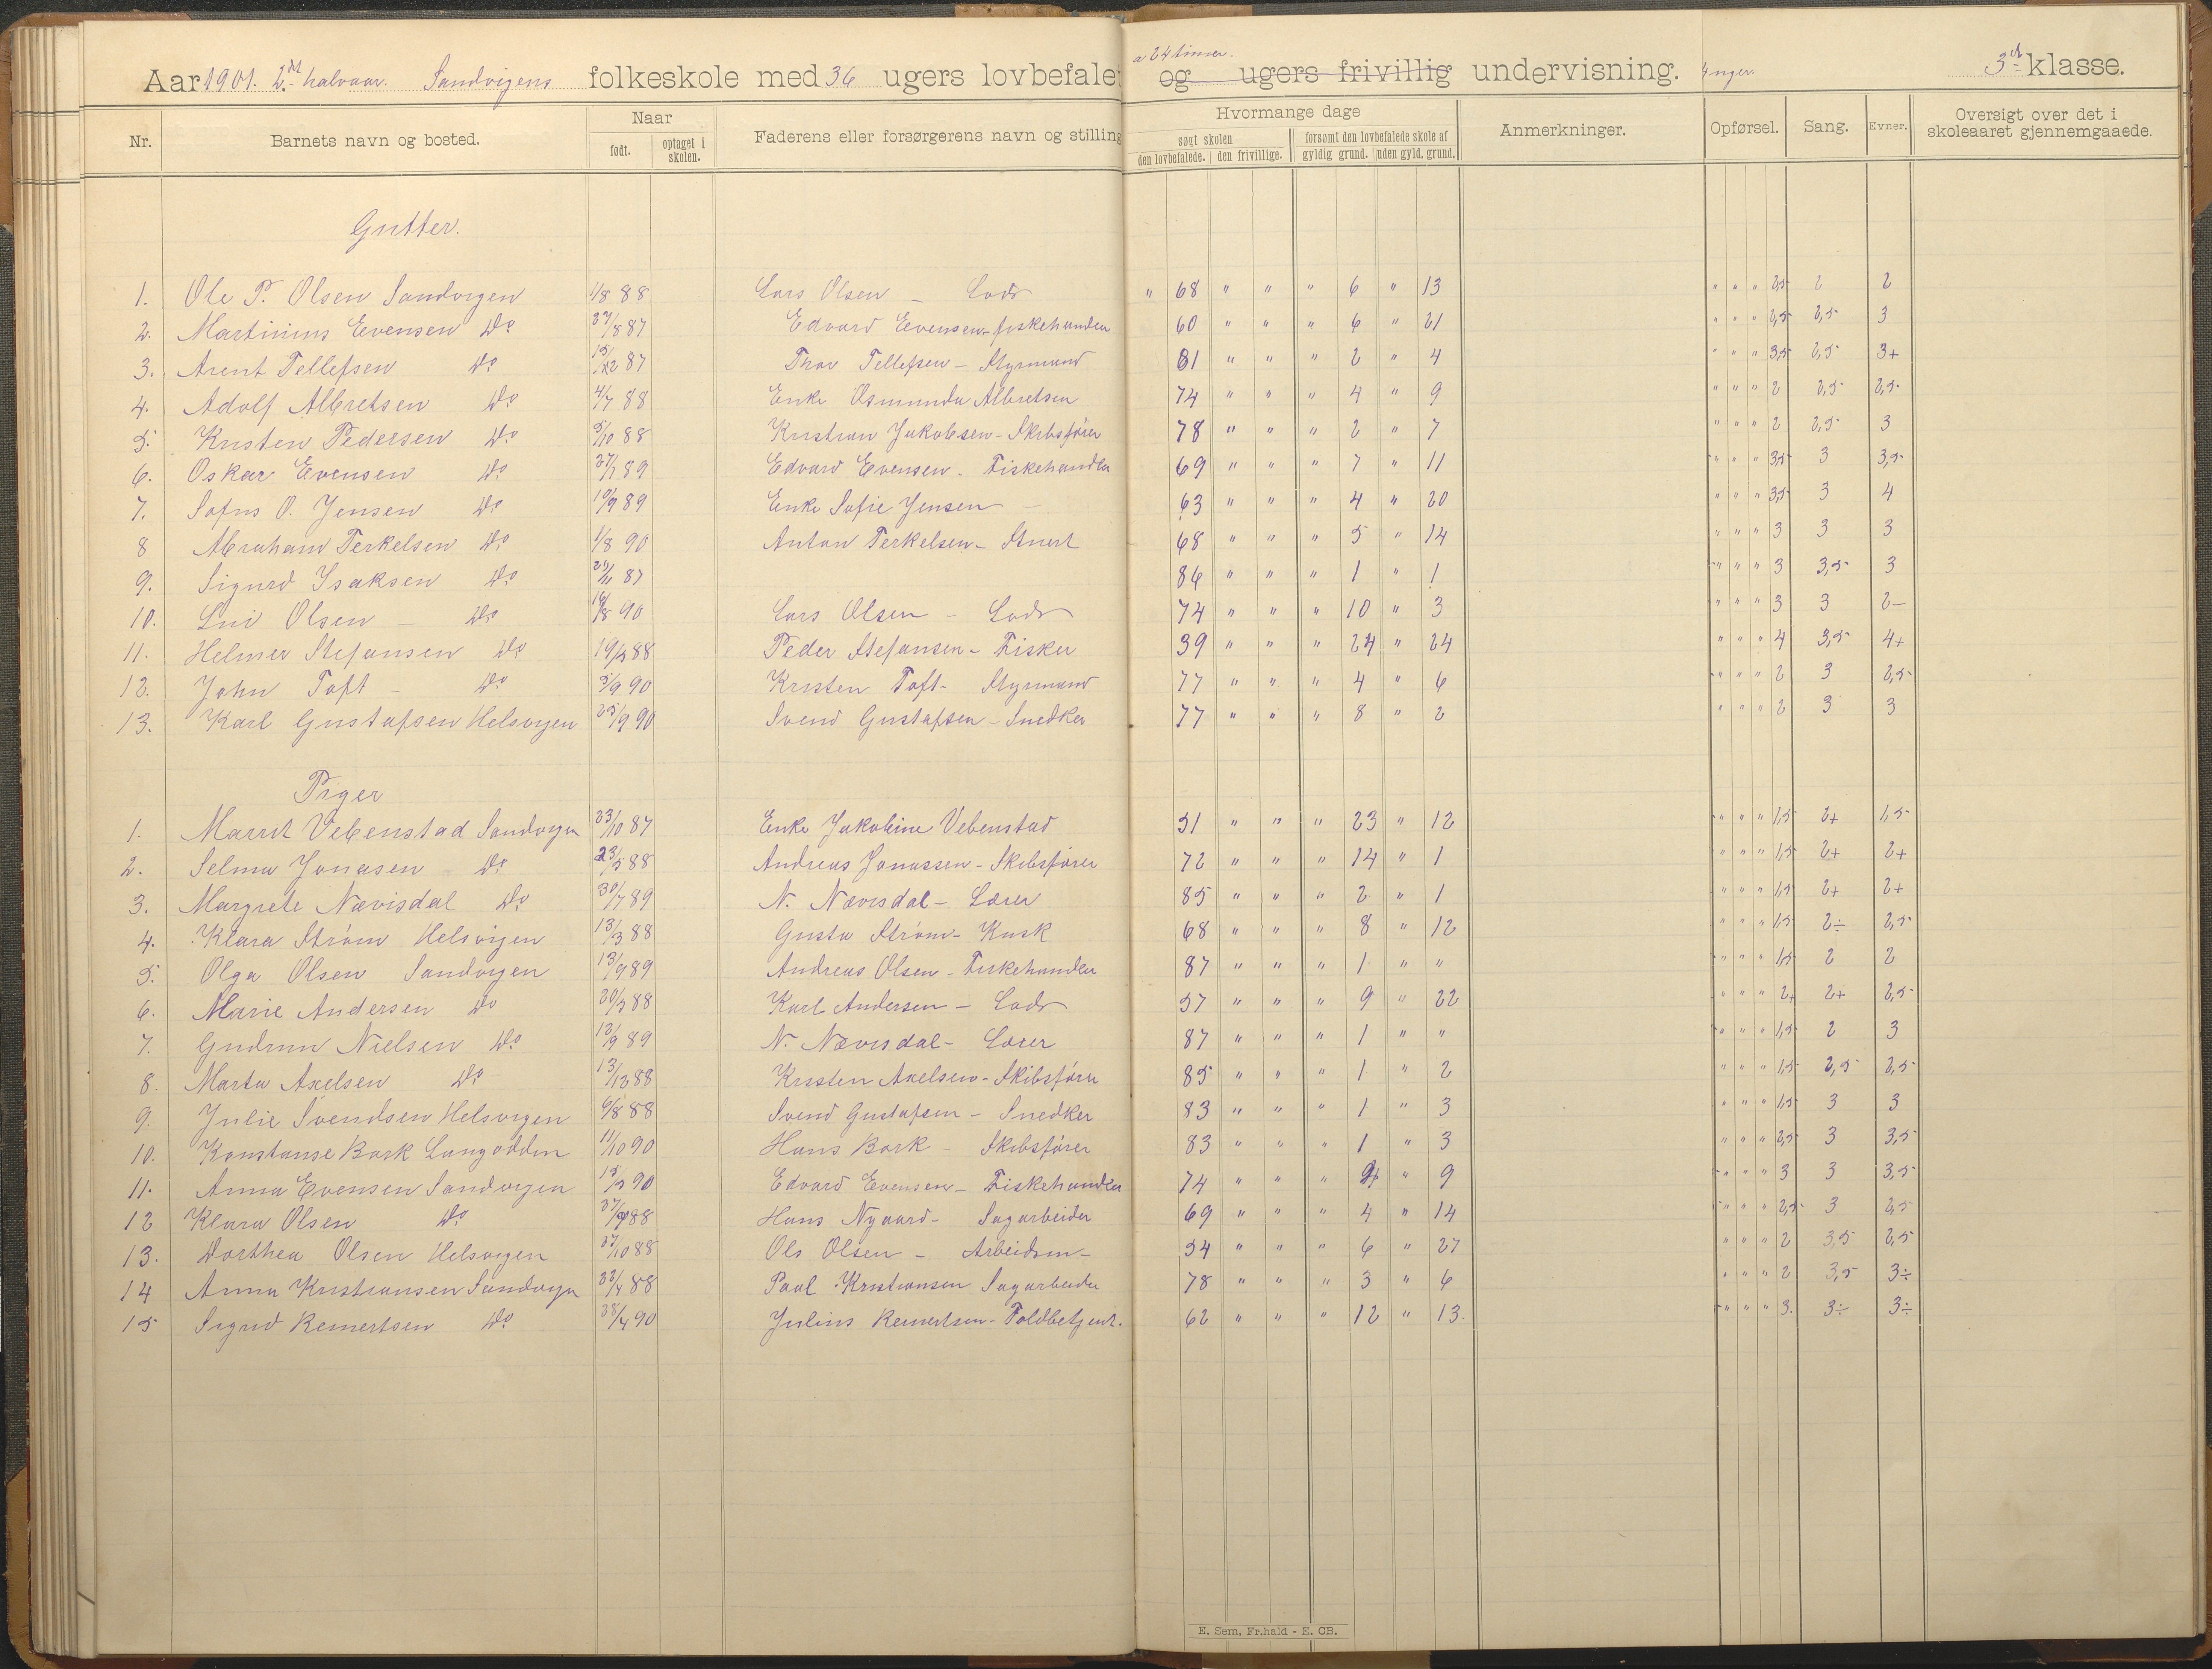 Aar 1901. 2det halvaar. Sandvigens folkeskole med 36 ugers lovbefalet og ugers frivillig undervisning. 3die klasse.
a 24 timer.
Nr. Barnets navn og bosted. Naar født. optaget i skolen. Faderens eller forsørgerens navn og stilling Hvormange dage søgt skolen den lovbefalede. den frivillige. forsømt den lovbefalede skole af gyldig grund. uden gyld. grund. Anmerkninger. Opførsel. Sang. Evner. Oversigt over det i skoleaaret gjennemgaaede.
Gutter.
1. Ole P. Olsen Sandvigen 1/8 88 Lars Olsen – Lods " 68 " " " 6 " 13 " " " 2,5 2 2
2. Martinius Evensen Do 27/8 87 Edvard Evensen – fiskehandler 60 " " " 6 " 21 " " " 2,5 2,5 3
3. Arent Tellefsen Do 15/12 87 Thor Tellefsen – Styrmand 81 " " " 2 " 4 " " " 3,5 2,5 3+
4. Adolf Albretsen Do 4/7 88 Enke Osmunda Albretsen 74 " " " 4 " 9 " " " 2 2,5 2,5
5. Kristen Pedersen Do 5/10 88 Kristian Jakobsen – Skibsfører 78 " " " 2 " 7 " " " 2 2,5 3
6. Oskar Evensen Do 27/1 89 Edvard Evensen. Fiskehandler 69 " " " 7 " 11 " " " 3,5 3 3,5
7. Sofus O. Jensen Do 10/9 89 Enke Sofie Jensen – 63 " " " 4 " 20 " " " 3,5 3 4
8 Abraham Terkelsen Do 1/8 90 Anton Terkelsen – Stuert 68 " " " 5 " 14 " " " 3 3 3
9. Sigurd Isaksen Do 29/11 87 86 " " " 1 " 1 " " " 3 3,5 3
10. Lui Olsen – Do 16/8 90 Lars Olsen – Lods 74 " " " 10 " 3 " " " 3 3 2–
11. Helmer Stefansen Do 19/2 88 Peder Stefansen – Fisker 39 " " " 24 " 24 " " " 4 3,5 4+
12. John Toft – Do 3/9 90 Kristen Toft – Styrmand 77 " " " 4 " 6 " " " 2 3 2,5
13. Karl Gustafsen Helsvigen 25/9 90 Svend Gustafsen – Snedker 77 " " " 8 " 2 " " " 2 3 3
Piger
1. Marrit Vebenstad Sandvigen 23/10 87 Enke Jakobine Vebenstad 51 " " " 23 " 12 " " " 1,5 2+ 1,5
2. Selma Jonasen Do 23/5 88 Andreas Jonassen – Skibsfører 72 " " " 14 " 1 " " " 1,5 2+ 2+
3. Margrete Nævisdal Do 30/7 89 N. Nævisdal – Lærer 85 " " " 2 " 1 " " " 1,5 2+ 2+
4. Klara Strøm Helsvigen 13/3 88 Gusta Strøm – Kusk 68 " " " 8 " 12 " " " 1,5 2÷ 2,5
5. Olga Olsen Sandvigen 13/9 89 Andreas Olsen – Fiskehandler 87 " " " 1 " " " " " 1,5 2 2
6. Marie Andersen Do 20/2 88 Karl Andersen – Lods 57 " " " 9 " 22 " " " 2+ 2+ 2,5
7. Gudrun Nielsen Do 12/9 89 N. Nævisdal – Lærer 87 " " " 1 " " " " " 1,5 2 3
8. Marta Axelsen Do 13/12 88 Kristen Axelsen – Skibsfører 85 " " " 1 " 2 " " " 1,5 2,5 2,5
9. Julie Svendsen Helsvigen 6/8 88 Svend Gustafsen – Snedker 83 " " " 1 " 3 " " " 1,5 3 3
10. Konstanse Bork Langodden 11/10 90 Hans Bork – Skibsfører 83 " " " 1 " 3 " " " 2,5 3 3,5
11. Anna Evensen Sandvigen 15/2 90 Edvard Evensen – Fiskehandler 74 " " " 4 " 9 " " " 3 3 3,5
12 Klara Olsen Do 88 Hans Nygaard – Sagarbeider 69 " " " 4 " 14 " " " 2,5 3 2,5
13. Dorthea Olsen Helsvigen 27/10 88 Ols Olsen – Arbeidsm– 54 " " " 6 " 27 " " " 2 3,5 2,5
14 Anna Kristiansen Sandvigen 22/4 88 Paal Kristiansen Sagarbeider 78 " " " 3 " 6 " " " 2 3,5 3÷
15 Sigrid Reinertsen Do 28/4 90 Julius Reinertsen – Toldbetjent. 62 " " " 12 " 13. " " " 3. 3÷ 3÷
E. Sem, Fr.hald - E. CB.